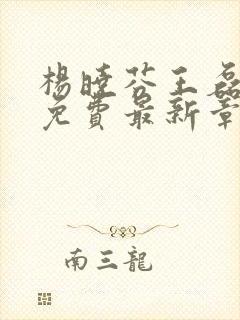 楊曉芬王磊
免費最新章
南三龍